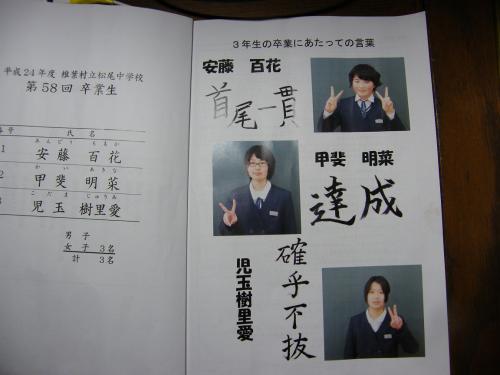 平成24年度 椎葉村立松尾中学校
第58回 卒業生
番号 氏名
1 安藤 百花
あんどう ももか
2 甲斐 明菜
かい あきな
3 児玉 樹里愛
こだま じゅりあ
男子
女子 3名
計 3名
3年生の卒業にあたっての言葉
安藤 百花
首尾一貫
甲斐 明菜
達成
児玉樹里愛
確乎不抜